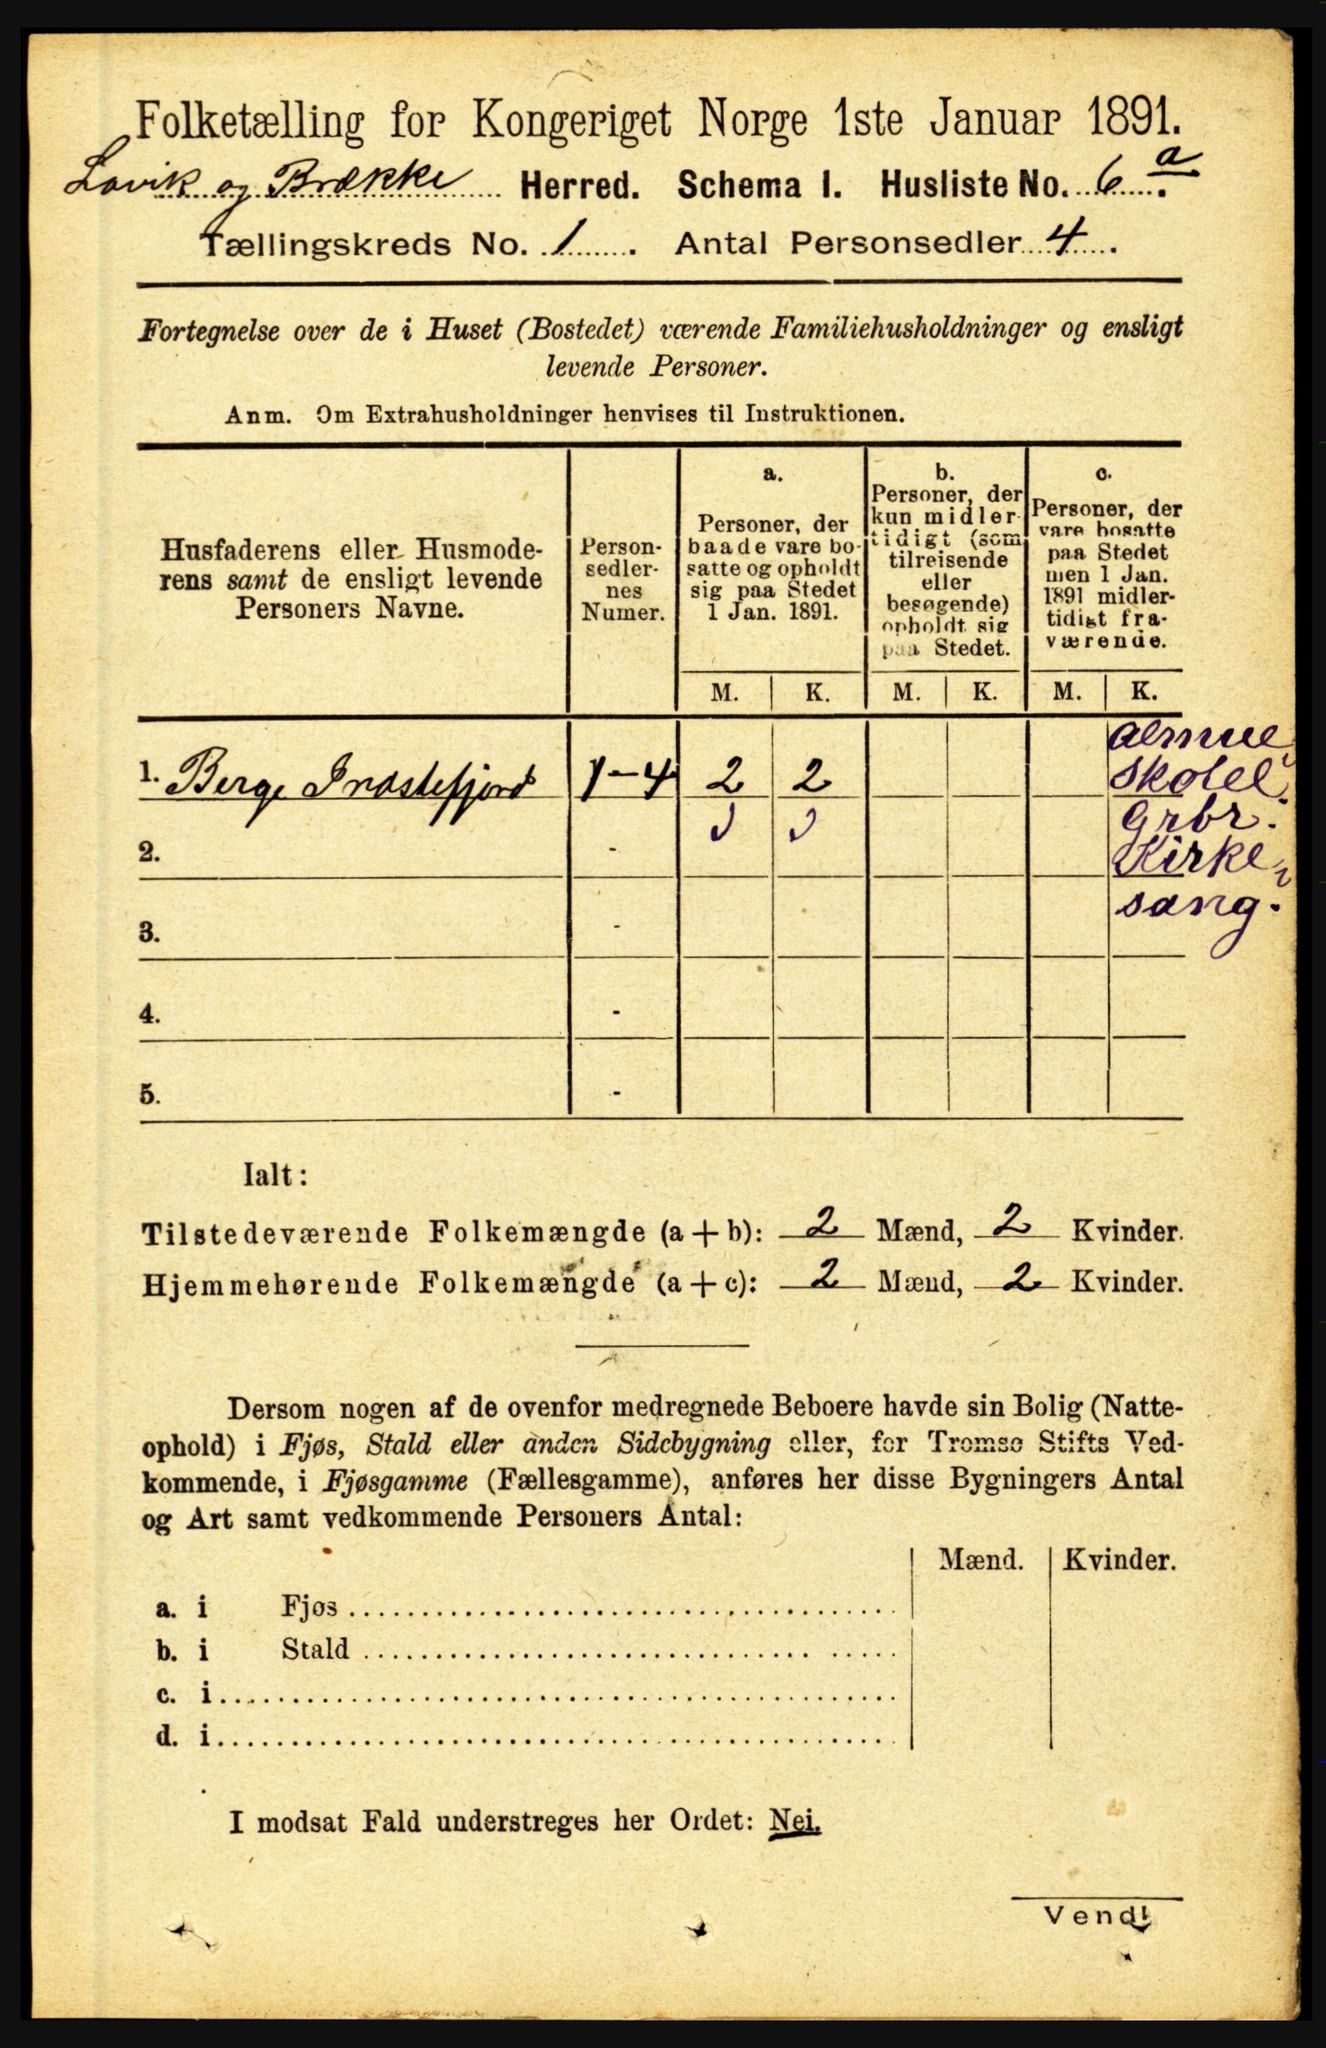 Folketælling for Kongeriget Norge 1ste Januar 1891.
Lavik og Brække Herred. Schema I. Husliste No. 6 a.
Tællingskreds No. 1. Antal Personsedler 4.
Fortegnelse over de i Huset (Bostedet) værende Familiehusholdninger og ensligt
levende Personer.
Anm. Om Extrahusholdninger henvises til Instruktionen.
Husfaderens eller Husmode-
rens samt de ensligt levende
Personers Navne.
Person-
sedler-
nes
Numer.
a.
Personer, der
baade vare bo-
satte og opholdt
sig paa Stedet
1 Jan. 1891.
b.
Personer, der
kun midler-
tidigt (som
tilreisende
eller
besøgende)
opholdt sig
paa Stedet.
c.
Personer, der
vare bosatte
paa Stedet
men 1 Jan.
1891 midler-
tidigt fra-
værende.
M. K. M. K. M. K.
1. Berge Indstefjord 1-4 2 2
almue
skolel.
Grbr.
Kirke
sang.
2. -
3. -
4. -
5. -
Ialt:
Tilstedeværende Folkemængde (a + b): 2 Mænd, 2 Kvinder.
Hjemmehørende Folkemængde (a + c): 2 Mænd, 2 Kvinder.
Dersom nogen af de ovenfor medregnede Beboere havde sin Bolig (Natte-
ophold) i Fjøs, Stald eller anden Sidebygning eller, for Tromsø Stifts Ved-
kommende, i Fjøsgamme (Fællesgamme), anføres her disse Bygningers Antal
og Art samt vedkommende Personers Antal:
Mænd. Kvinder.
a. i Fjøs
b. i Stald
c. i
d. i
I modsat Fald understreges her Ordet: Nei.
Vend!